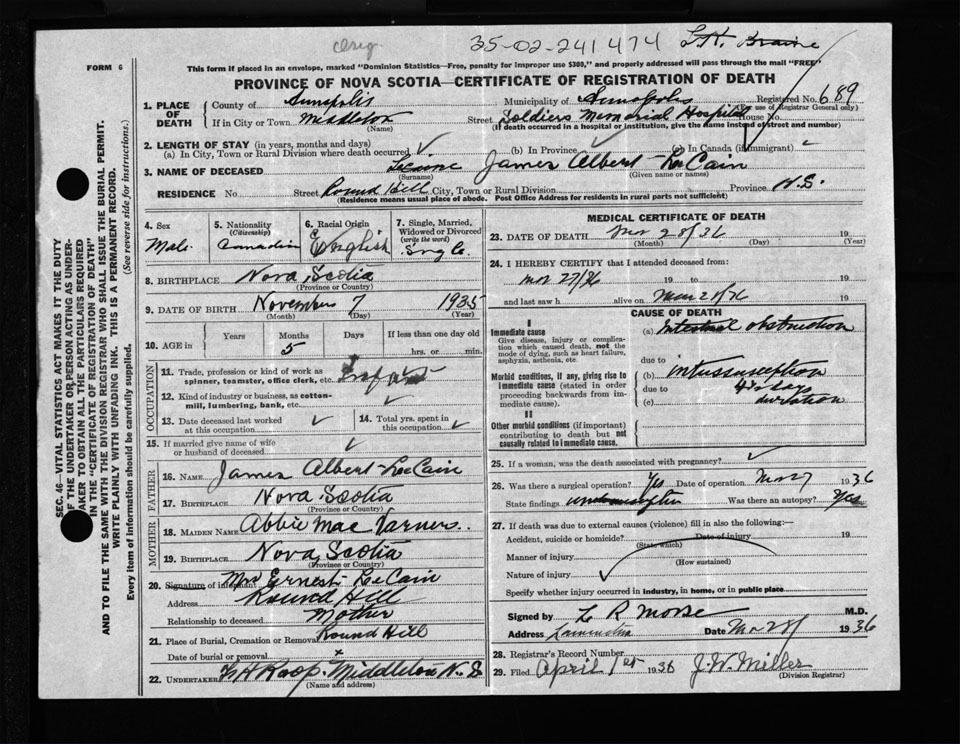 Orig. 35-02-241474 L.H. Braine
FORM 6
This form if placed in an envelope, marked "Dominion Statistics—Free, penalty for improper use $300," and properly addressed will pass through the mail "FREE"
PROVINCE OF NOVA SCOTIA—CERTIFICATE OF REGISTRATION OF DEATH
SEC. 46—VITAL STATISTICS ACT MAKES IT THE DUTY
OF THE UNDERTAKER OR PERSON ACTING AS UNDER-
TAKER TO OBTAIN ALL THE PARTICULARS REQUIRED
IN THE "CERTIFICATE OF REGISTRATION OF DEATH"
AND TO FILE THE SAME WITH THE DIVISION REGISTRAR WHO SHALL ISSUE THE BURIAL PERMIT.
WRITE PLAINLY WITH UNFADING INK. THIS IS A PERMANENT RECORD.
Every item of information should be carefully supplied. (See reverse side for instructions.)
1. PLACE OF DEATH County of Annapolis Municipality of Annapolis Registered No. 689
(For use of Registrar General only)
If in City or Town Middleton (Name) Street Soldiers Memorial Hospital House No.
(If death occurred in a hospital or institution, give the name instead of street and number)
2. LENGTH OF STAY (in years, months and days)
(a) In City, Town or Rural Division where death occurred ✓ (b) In Province ✓ (c) In Canada (if immigrant) ✓
3. NAME OF DECEASED Lecaine James Albert LeCain
(Surname) (Given name or names)
RESIDENCE No. Street Round Hill City, Town or Rural Division Province N.S.
(Residence means usual place of abode. Post Office Address for residents in rural parts not sufficient)
4. Sex Male
5. Nationality (Citizenship) Canadian
6. Racial Origin English
7. Single, Married, Widowed or Divorced (write the word) Single
8. BIRTHPLACE Nova Scotia
(Province or Country)
9. DATE OF BIRTH November 7 1935
(Month) (Day) (Year)
10. AGE in Years Months 5 Days If less than one day old
hrs. or min.
OCCUPATION
11. Trade, profession or kind of work as spinner, teamster, office clerk, etc. Infant
12. Kind of industry or business, as cotton-mill, lumbering, bank, etc. ✓
13. Date deceased last worked at this occupation ✓
14. Total yrs. spent in this occupation ✓
15. If married give name of wife or husband of deceased ✓
FATHER
16. NAME James Albert LeCain
17. BIRTHPLACE Nova Scotia
(Province or Country)
MOTHER
18. MAIDEN NAME Abbie Mae Varners
19. BIRTHPLACE Nova Scotia
(Province or Country)
20. Signature of informant Mrs Ernest LeCain
Address Round Hill
Relationship to deceased Mother
21. Place of Burial, Cremation or Removal Round Hill
Date of burial or removal x
22. UNDERTAKER Middleton N.S.
(Name and address)
MEDICAL CERTIFICATE OF DEATH
23. DATE OF DEATH Mar 28/36 19
(Month) (Day) (Year)
24. I HEREBY CERTIFY that I attended deceased from:
Mar 27/36 19 to 19
and last saw h alive on Mar 28/36 19
CAUSE OF DEATH
I
Immediate cause
Give disease, injury or complication which caused death, not the mode of dying, such as heart failure, asphyxia, asthenia, etc.
(a) Intestinal obstruction
due to
Morbid conditions, if any, giving rise to immediate cause (stated in order proceeding backwards from immediate cause).
(b) intussusception
due to 4 days
(c) duration
II
Other morbid conditions (if important) contributing to death but not causally related to immediate cause.
25. If a woman, was the death associated with pregnancy? ✓
26. Was there a surgical operation? Yes Date of operation Mar 27 1936
State findings Was there an autopsy?
27. If death was due to external causes (violence) fill in also the following:—
Accident, suicide or homicide? Date of injury 19
(State which)
Manner of injury
(How sustained)
Nature of injury ✓
Specify whether injury occurred in industry, in home, or in public place
Signed by L R Morse M.D.
Address Lawrencetown Date Mar 28/ 1936
28. Registrar's Record Number
29. Filed April 1st 1936 J.W. Miller
(Division Registrar)